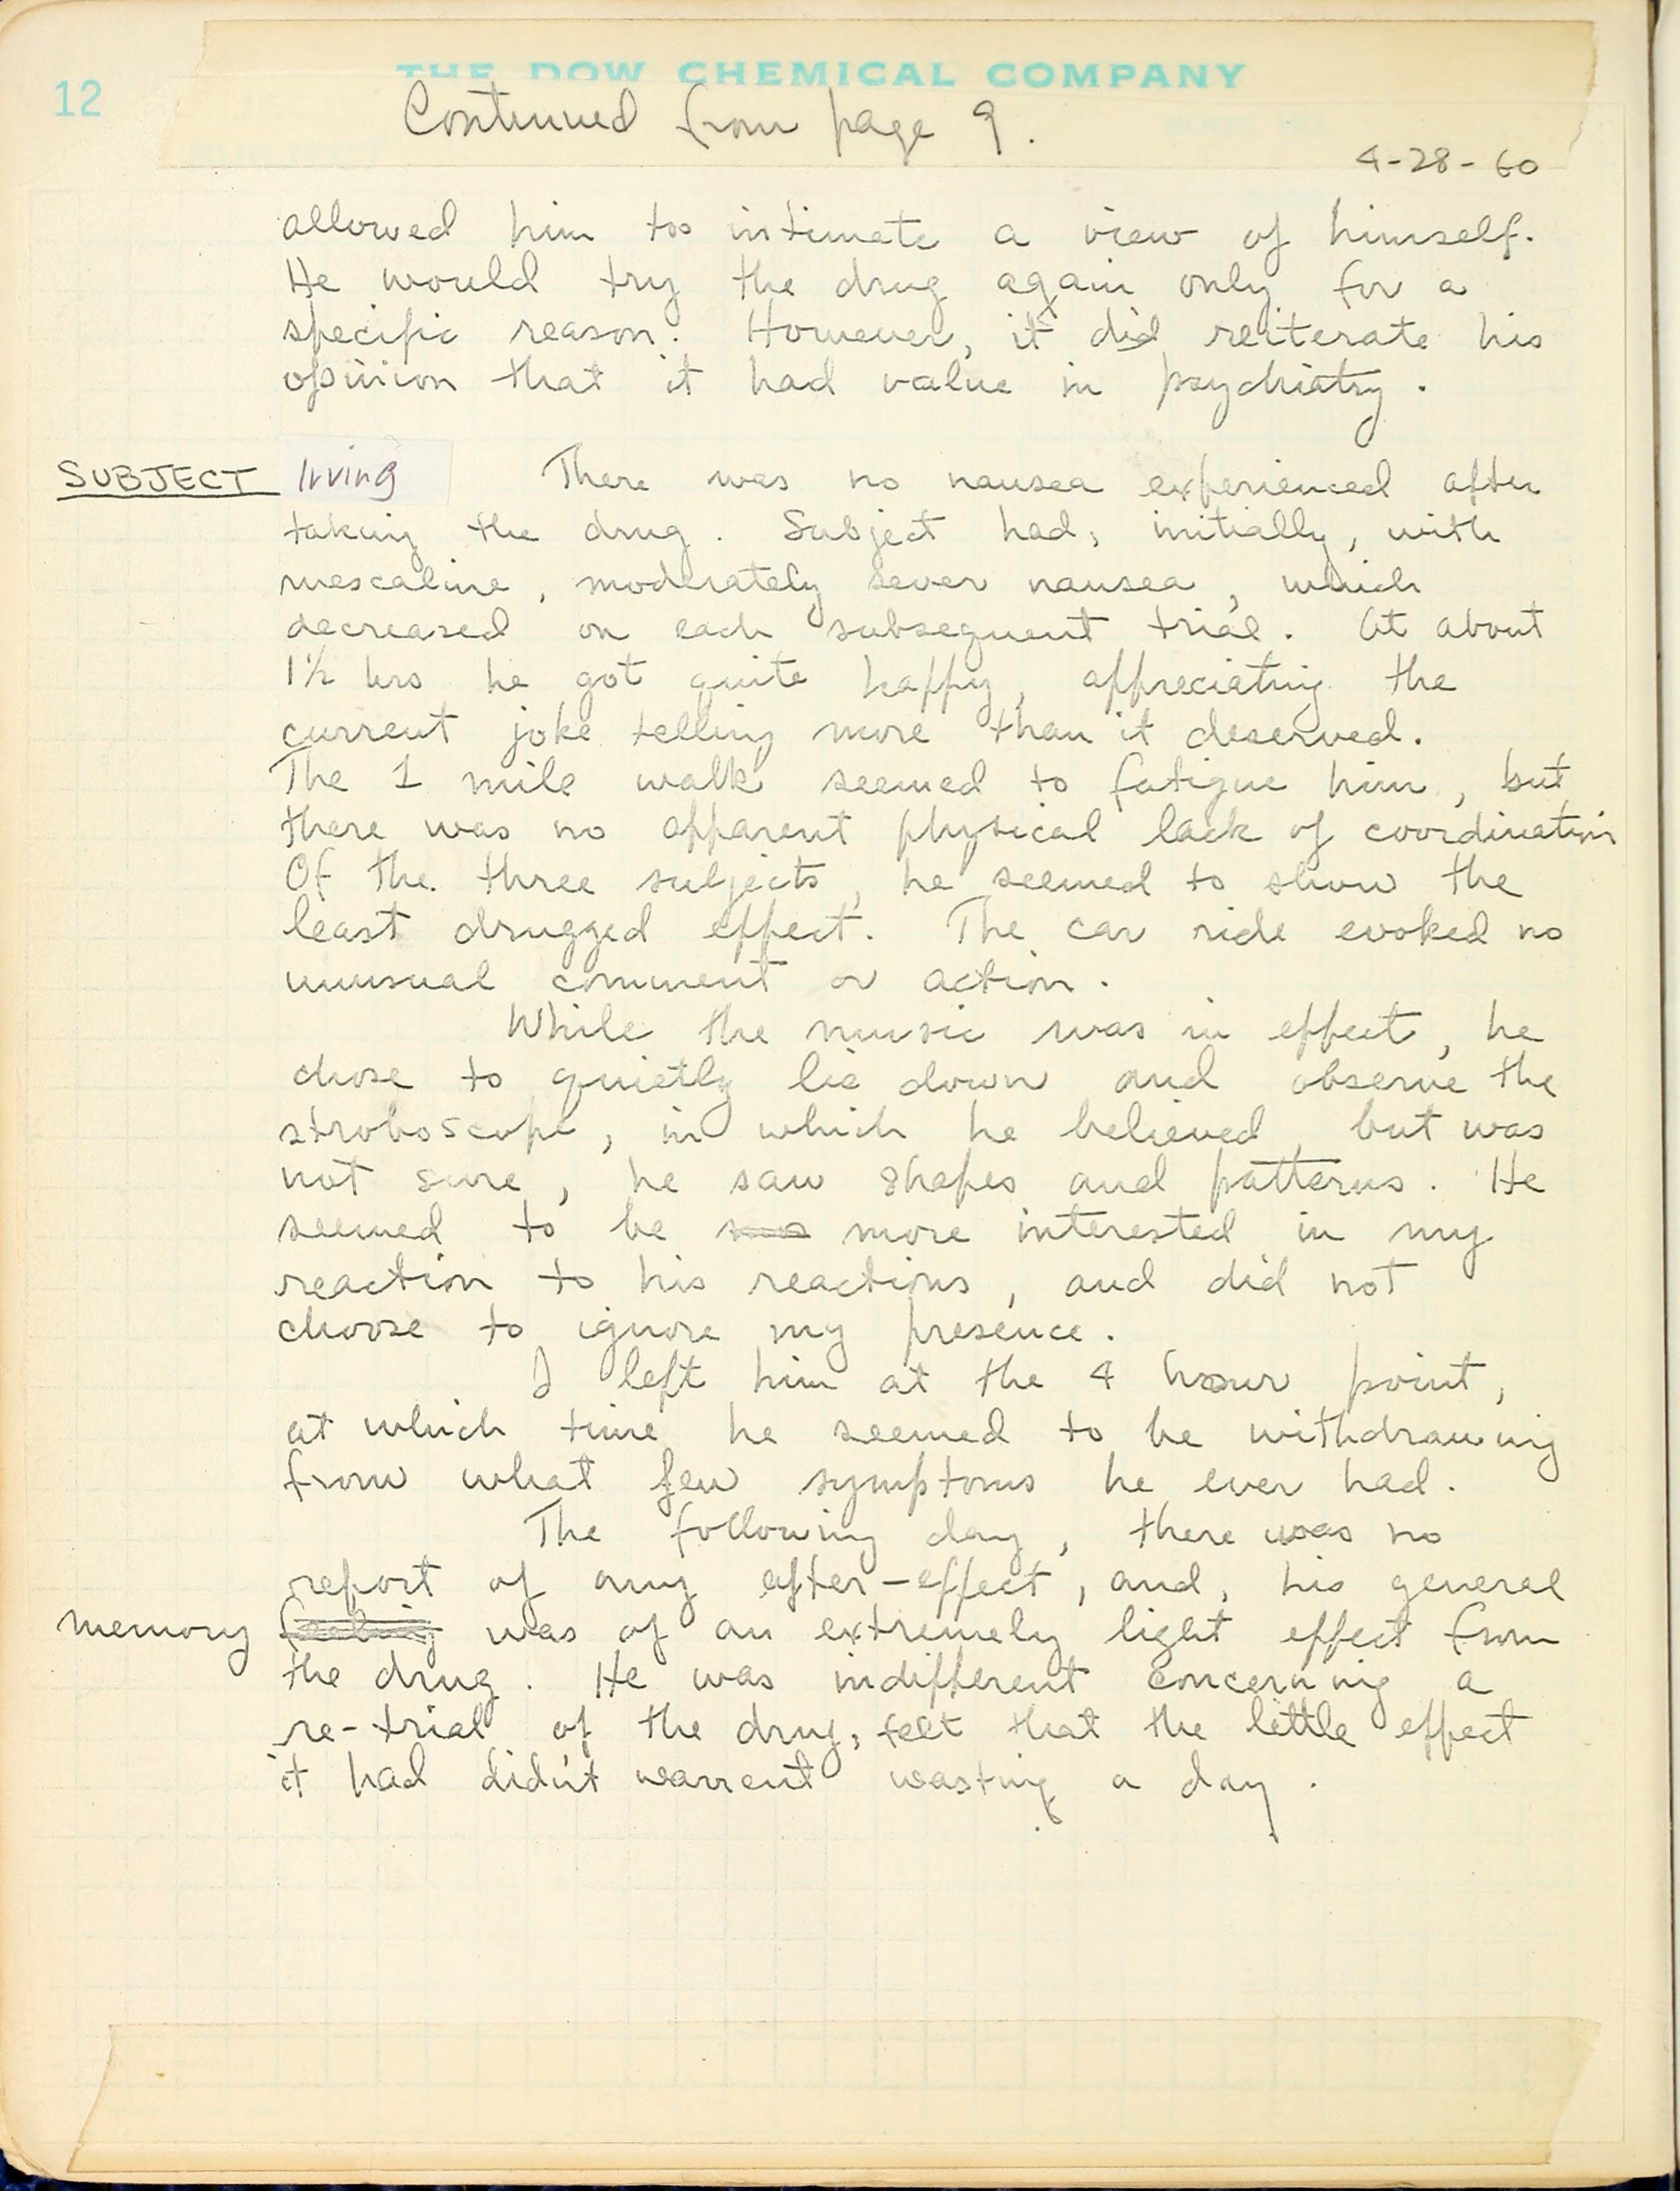 12
THE DOW CHEMICAL COMPANY
Continued from page 9.
4-28-60
allowed him too intimate a view of himself.
He would try the drug again only for a
specific reason. However, it did reiterate his
opinion that it had value in psychiatry.
SUBJECT Irving There was no nausea experienced after
taking the drug. Subject had, initially, with
mescaline, moderately sever nausea, which
decreased on each subsequent trial. At about
1½ hrs he got quite happy, appreciating the
current joke telling more than it deserved.
The 1 mile walk seemed to fatigue him, but
there was no apparent physical lack of coordination
Of the three subjects, he seemed to show the
least drugged effect. The car ride evoked no
unusual comment or action.
While the music was in effect, he
chose to quietly lie down and observe the
stroboscope, in which he believed, but was
not sure, he saw shapes and patterns. He
seemed to be more interested in my
reaction to his reactions, and did not
choose to ignore my presence.
I left him at the 4 hour point,
at which time he seemed to be withdrawing
from what few symptoms he ever had.
The following day, there was no
report of any after-effect, and, his general
memory feeling was of an extremely light effect from
the drug. He was indifferent concerning a
re-trial of the drug, felt that the little effect
it had didn't warrent wasting a day.